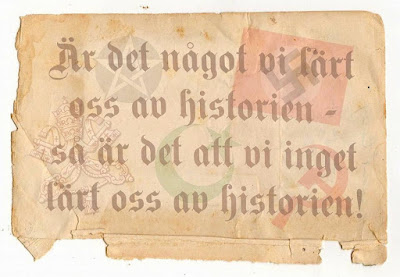 Är det något vi lärt
oss av historien -
så är det att vi inget
lärt oss av historien!